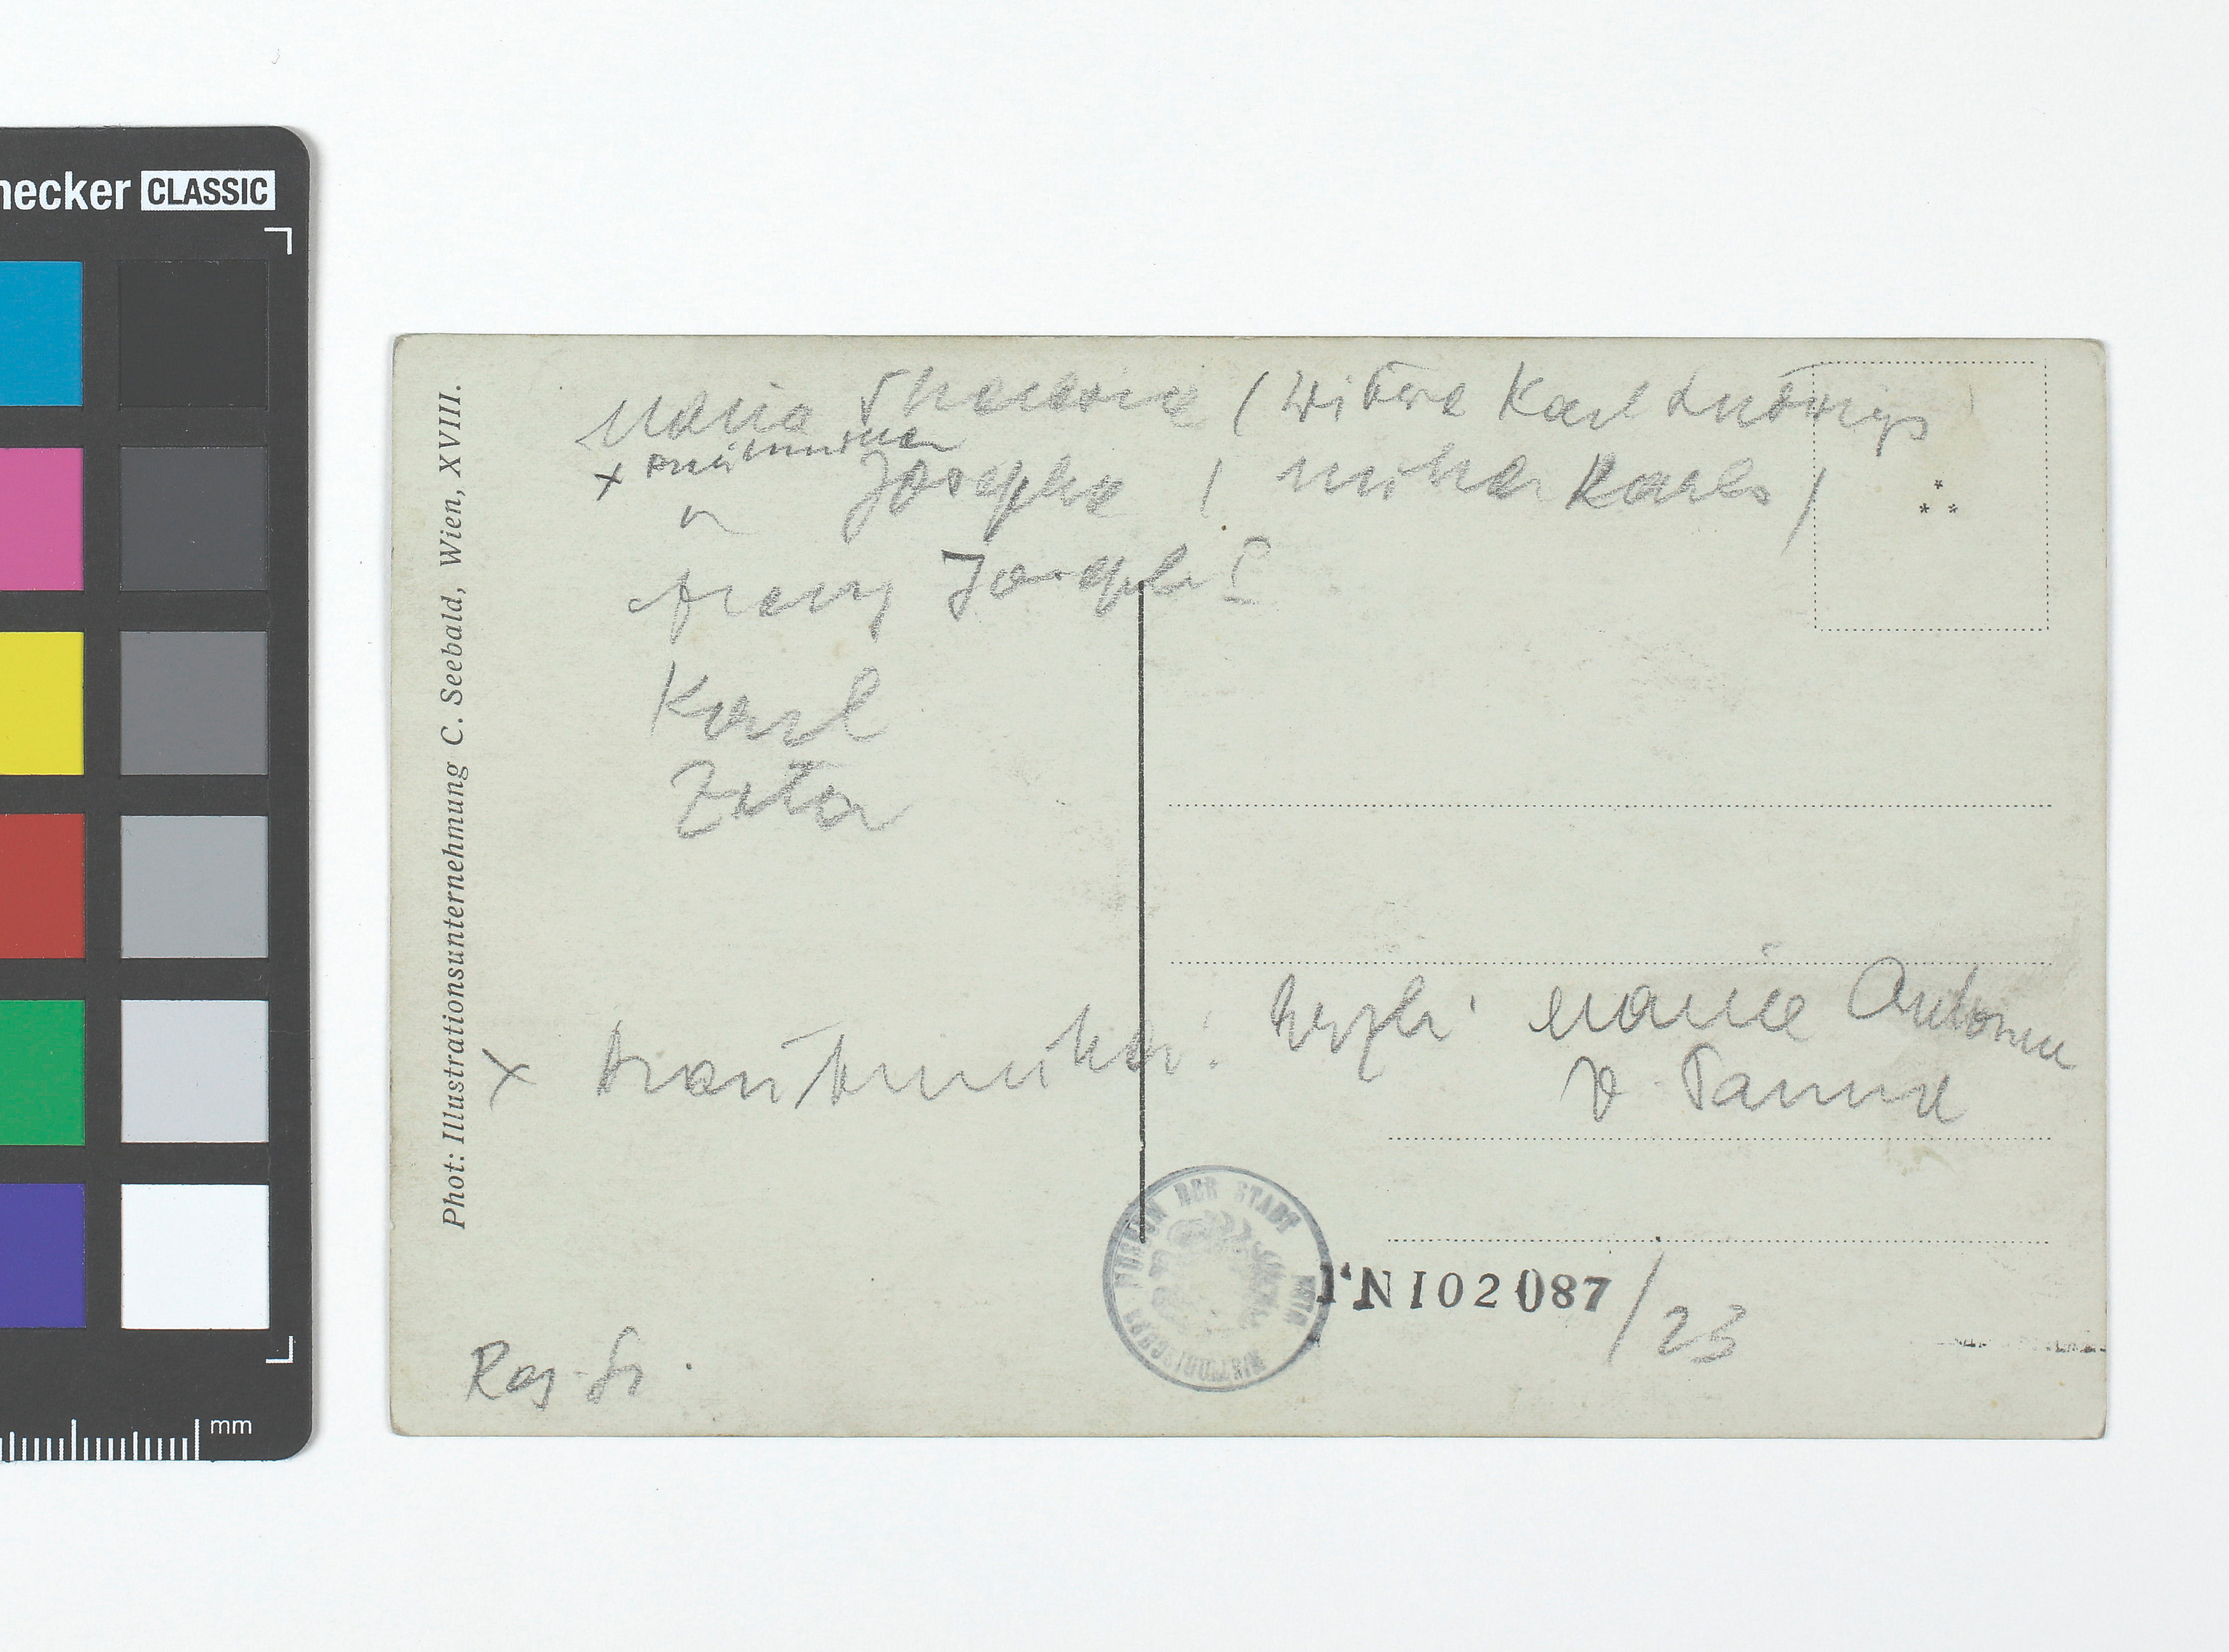 necker CLASSIC
mm
Phot: Illustrationsunternehmung C. Seebald, Wien, XVIII.
Maria Theresia (Witwe Karl Ludwigs
x
" Josepha (Mutter Karls)
Franz Joseph I
Karl
Zita
x Brautmutter: Herzogin Maria Antonia
v Parma
HISTORISCHES MUSEUM DER STADT WIEN
I.N 102087/23